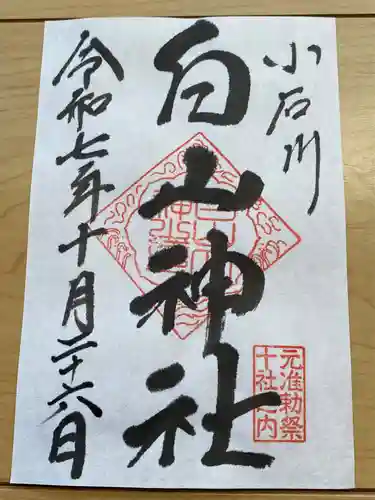 小石川
白山神社
元准勅祭
十社之内
令和七年十月二十六日